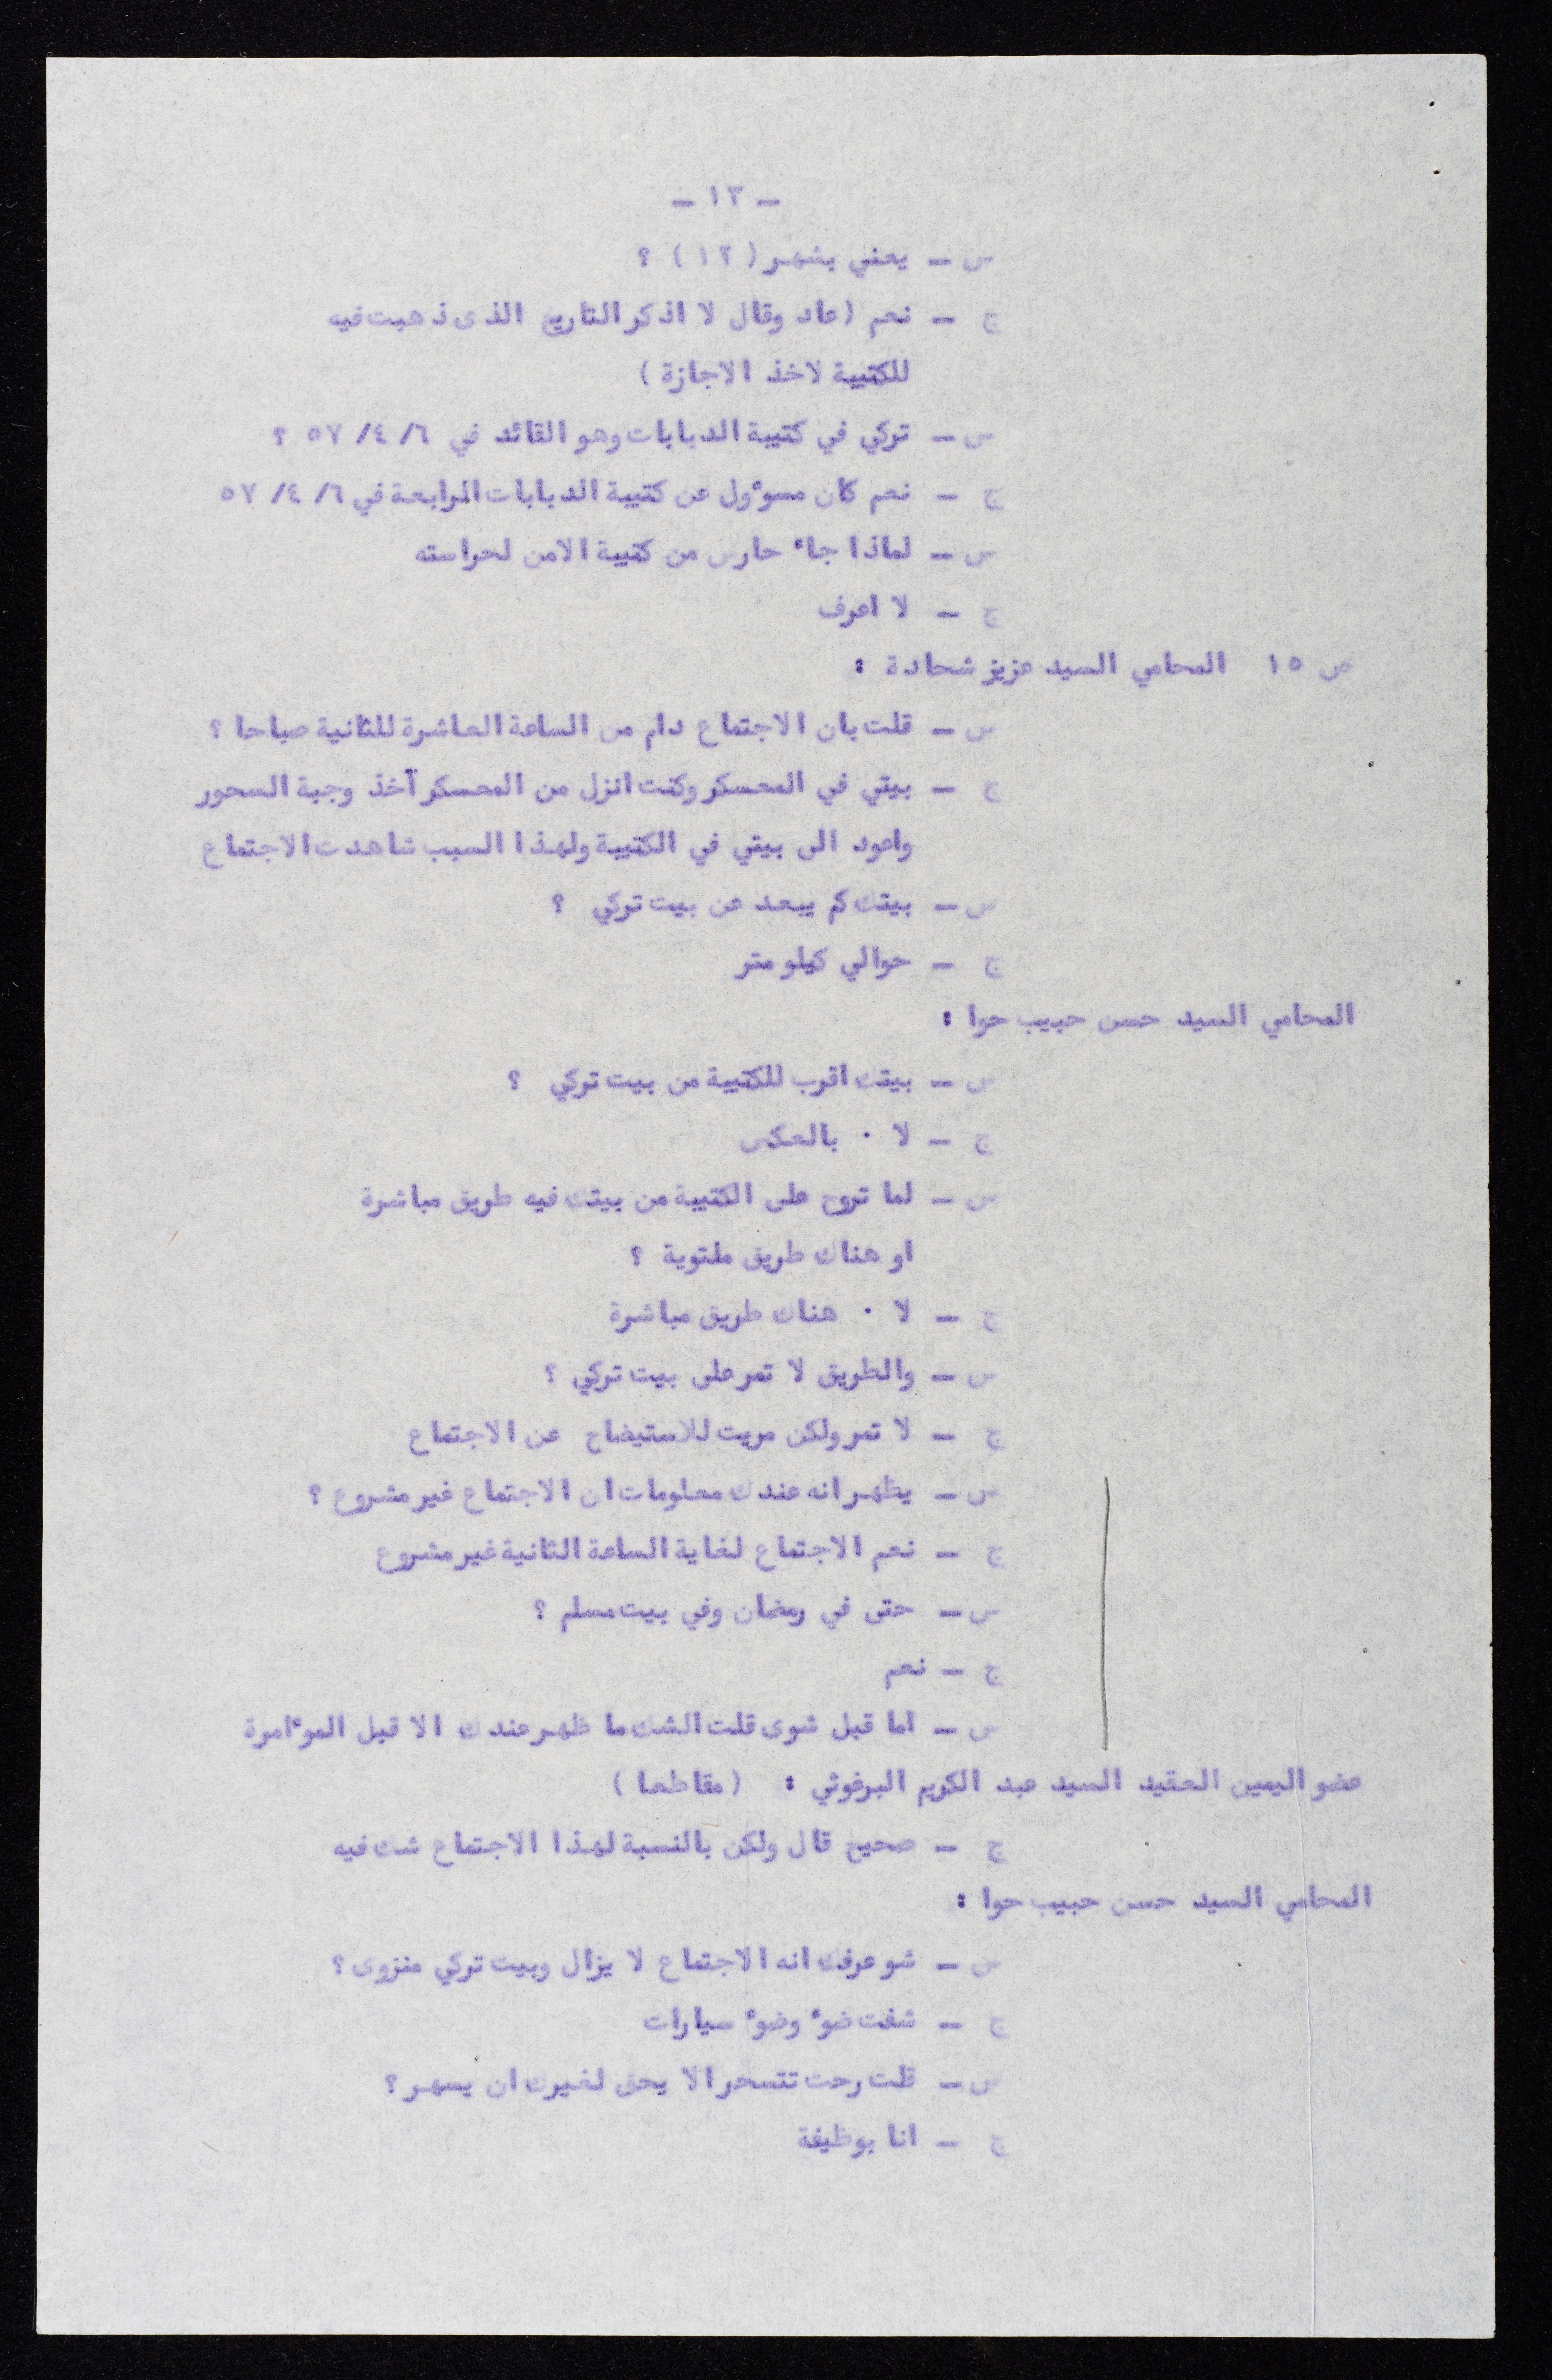 ـ ١٣ ـ
س ـ يعني بشهر ( ١٢ ) ؟
ج ـ نعم ( عاد وقال لا اذكر التاريخ الذى ذهبت فيه
للكتيبة لاخذ الاجازة )
س ـ تركي في كتيبة الدبابات وهو القائد في ٦/ ٤/ ٥٧ ؟
ج ـ نعم كان مسوٴول عن كتيبة الدبابات الرابعة في ٦/ ٤/ ٥٧
س ـ لماذا جاء حارس من كتيبة الامن لحراسته
ج ـ لا اعرف
ص ١٥ المحامي السيد عزيز شحادة :
س ـ قلت بان الاجتماع دام من الساعة العاشرة للثانية صباحا ؟
ج ـ بيتي في المعسكر وكنت انزل من المعسكر آخذ وجبة السحور
واعود الى بيتي في الكتيبة ولهذا السبب شاهدت الاجتماع
س ـ بيتك كم يبعد عن بيت تركي ؟
ج ـ حوالي كيلو متر
المحامي السيد حسن حبيب حوا :
س ـ بيتك اقرب للكتيبة من بيت تركي ؟
ج ـ لا ٠ بالعكس
س ـ لما تروح على الكتيبة من بيتك فيه طريق مباشرة
او هناك طريق ملتوية ؟
ج ـ لا ٠ هناك طريق مباشرة
س ـ والطريق لا تمر على بيت تركي ؟
ج ـ لا تمر ولكن مريت للاستيضاح عن الاجتماع
س ـ يظهر انه عندك معلومات ان الاجتماع غير مشروع ؟
ج ـ نعم الاجتماع لغاية الساعة الثانية غير مشروع
س ـ حتى في رمضان وفي بيت مسلم ؟
ج ـ نعم
س ـ اما قبل شوى قلت الشك ما ظهر عندك الا قبل الموٴامرة
عضو اليمين العقيد السيد عبد الكريم البرغوثي : ( مقاطعا )
ج ـ صحيح قال ولكن بالنسبة لهذا الاجتماع شك فيه
المحامي السيد حسن حبيب حوا :
س ـ شو عرفك انه الاجتماع لا يزال وبيت تركي منزوى ؟
ج ـ شفت ضوء وضوء سيارات
س ـ قلت رحت تتسحر الا يحق لغيرك ان يسهر ؟
ج ـ انا بوظيفة